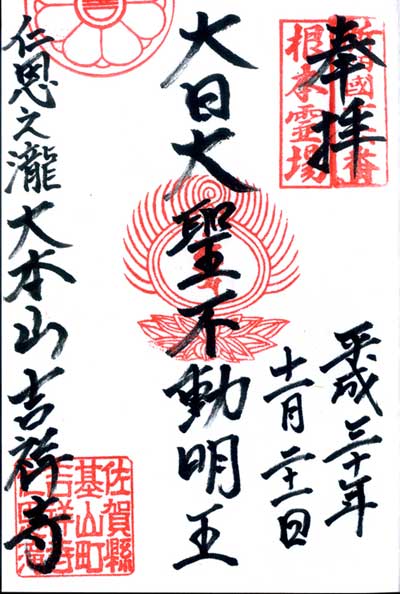 奉拝
平成三十年
十一月二十一日
大日大聖不動明王
仁恩之瀧大本山吉祥寺
根本霊場
佐賀縣
基山町
吉祥寺